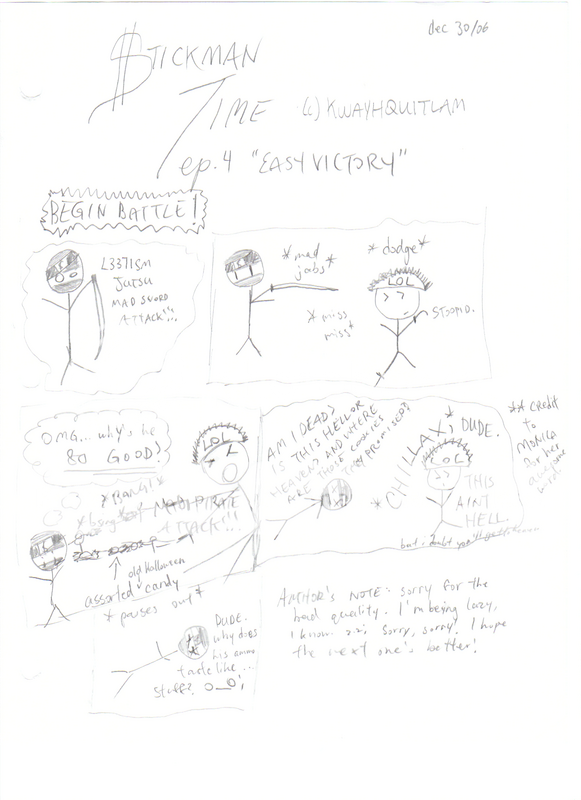 dec 30/06
$TICKMAN
TIME
(c) KWAYHQUITLAM
ep. 4 "EASY VICTORY"
BEGIN BATTLE!
L337ISM
JUTSU
MAD SWORD
ATTACK!!!
*mad
jabs*
*miss
miss*
*dodge*
LOL
STOOPID.
OMG... why's he
so GOOD?
LOL
*BANG!*
*bang*
MAD PIRATE
ATTACK!!!
old Halloween
assorted candy
*passes out*
AM I DEAD?
IS THIS HELL OR
HEAVEN? AND WHERE
ARE THOSE COOKIES
THEY PROMISED?
*CHILLAX, DUDE.
LOL
THIS
AINT
HELL.
but i doubt you'll
** CREDIT
to
MONICA
for her
DUDE.
why does
his ammo
taste like...
stuff? O__O;
AUTHOR'S NOTE: sorry for the
bad quality. I'm being lazy,
I know. >.>; Sorry, sorry! I hope
the next one's better!